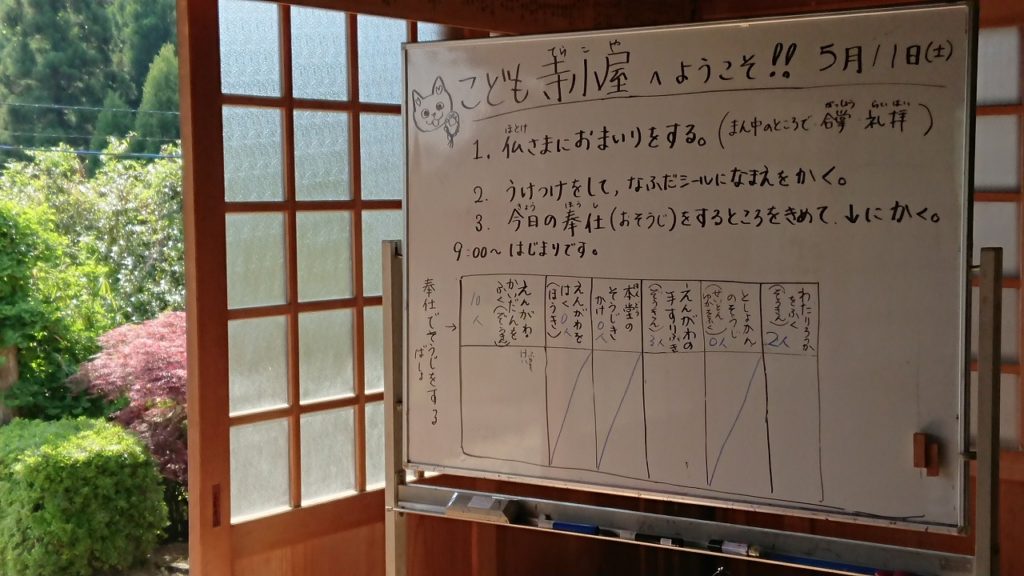 こども寺小屋へようこそ!! 5月11日(土)
てらこや
1. 仏さまにおまいりをする。(まん中のところで合掌・礼拝)
ほとけ がっしょう らいはい
2. うけつけをして、なふだシールになまえをかく。
3. 今日の奉仕(おそうじ)をするところをきめて、↓にかく。
きょう ほうし
9:00~はじまりです。
わたりろうか
をふく
2人
としょかん
のそうじ
0人
えんがわの
手すりふき
(ぞうきん) 3人
本堂の
そうじき
かけ 0人
えんがわを
はく 0人
(ほうき)
えんがわ・
かいだんを
ふく(ぞうきん)
10人
奉仕でそうじをする
ばしょ
→